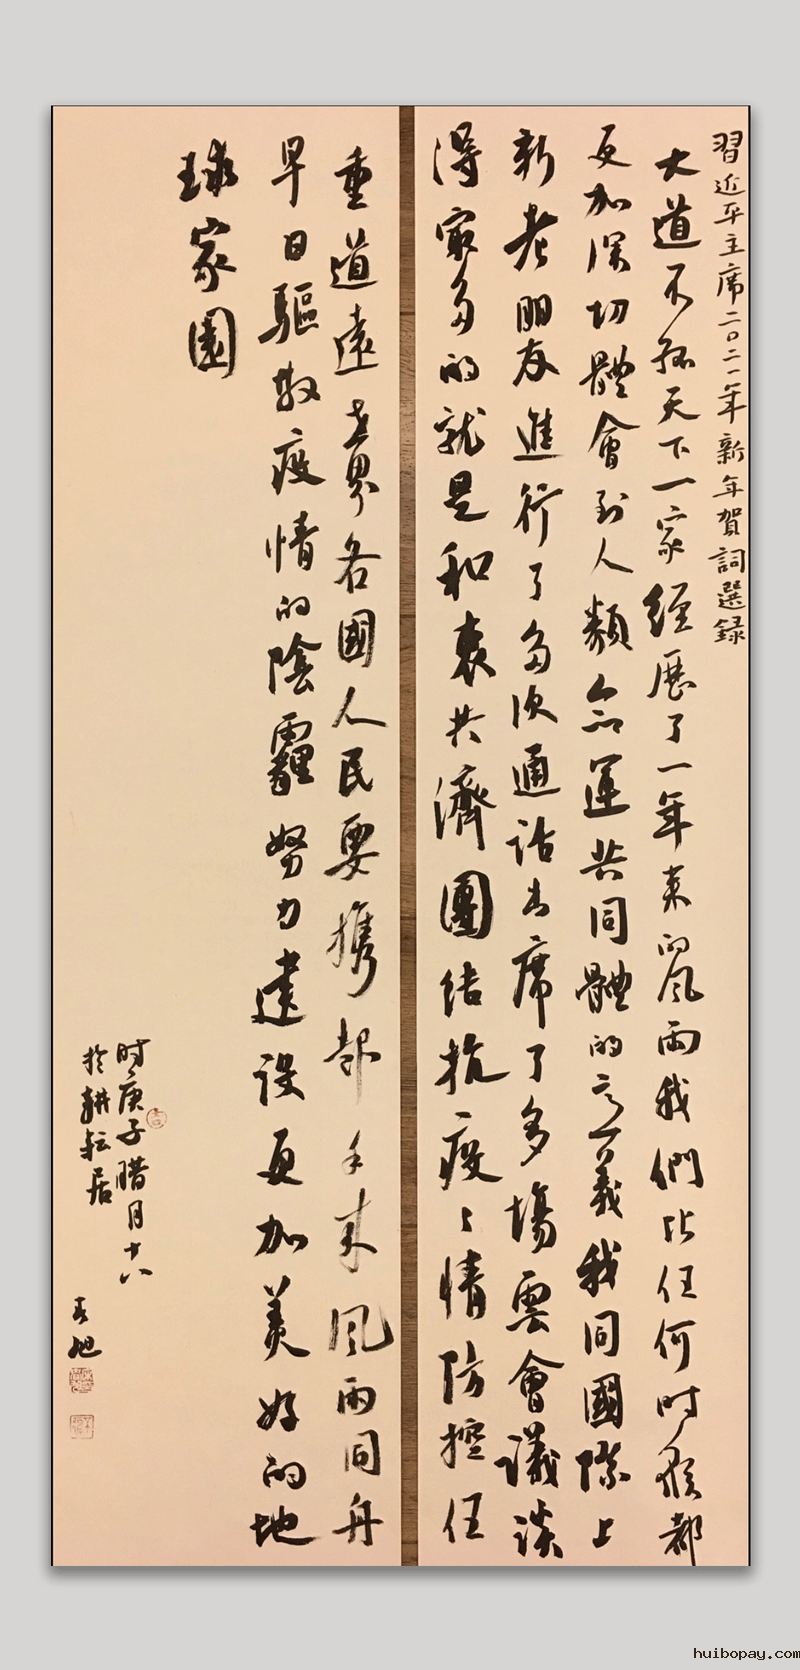 習近平主席二〇二一年新年賀詞選録
大道不孤天下一家經歷了一年来的風雨我們比任何时候都
更加深切體會到人類命運共同體的意義我同國際上
新老朋友進行了多次通话出席了多場雲會議談
得最多的就是和衷共濟團结抗疫疫情防控任
重道遠世界各國人民要携起手来風雨同舟
早日驅散疫情的陰霾努力建设更加美好的地
球家園
时庚子腊月十八
於耕耘居
huibopay.com